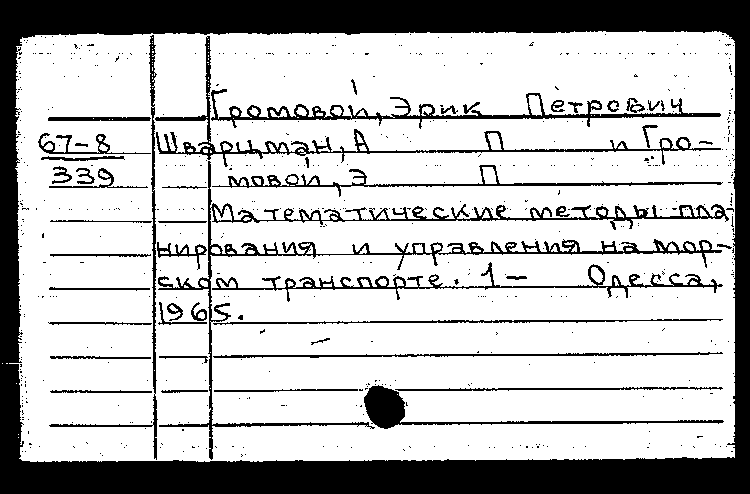 Громовой, Эрик Петрович
67-8 Шварцман, А П и Гро-
339 мовой, Э П
Математические методы пла
нирования и управления на мор-
ском транспорте. 1- Одесса,
1965.